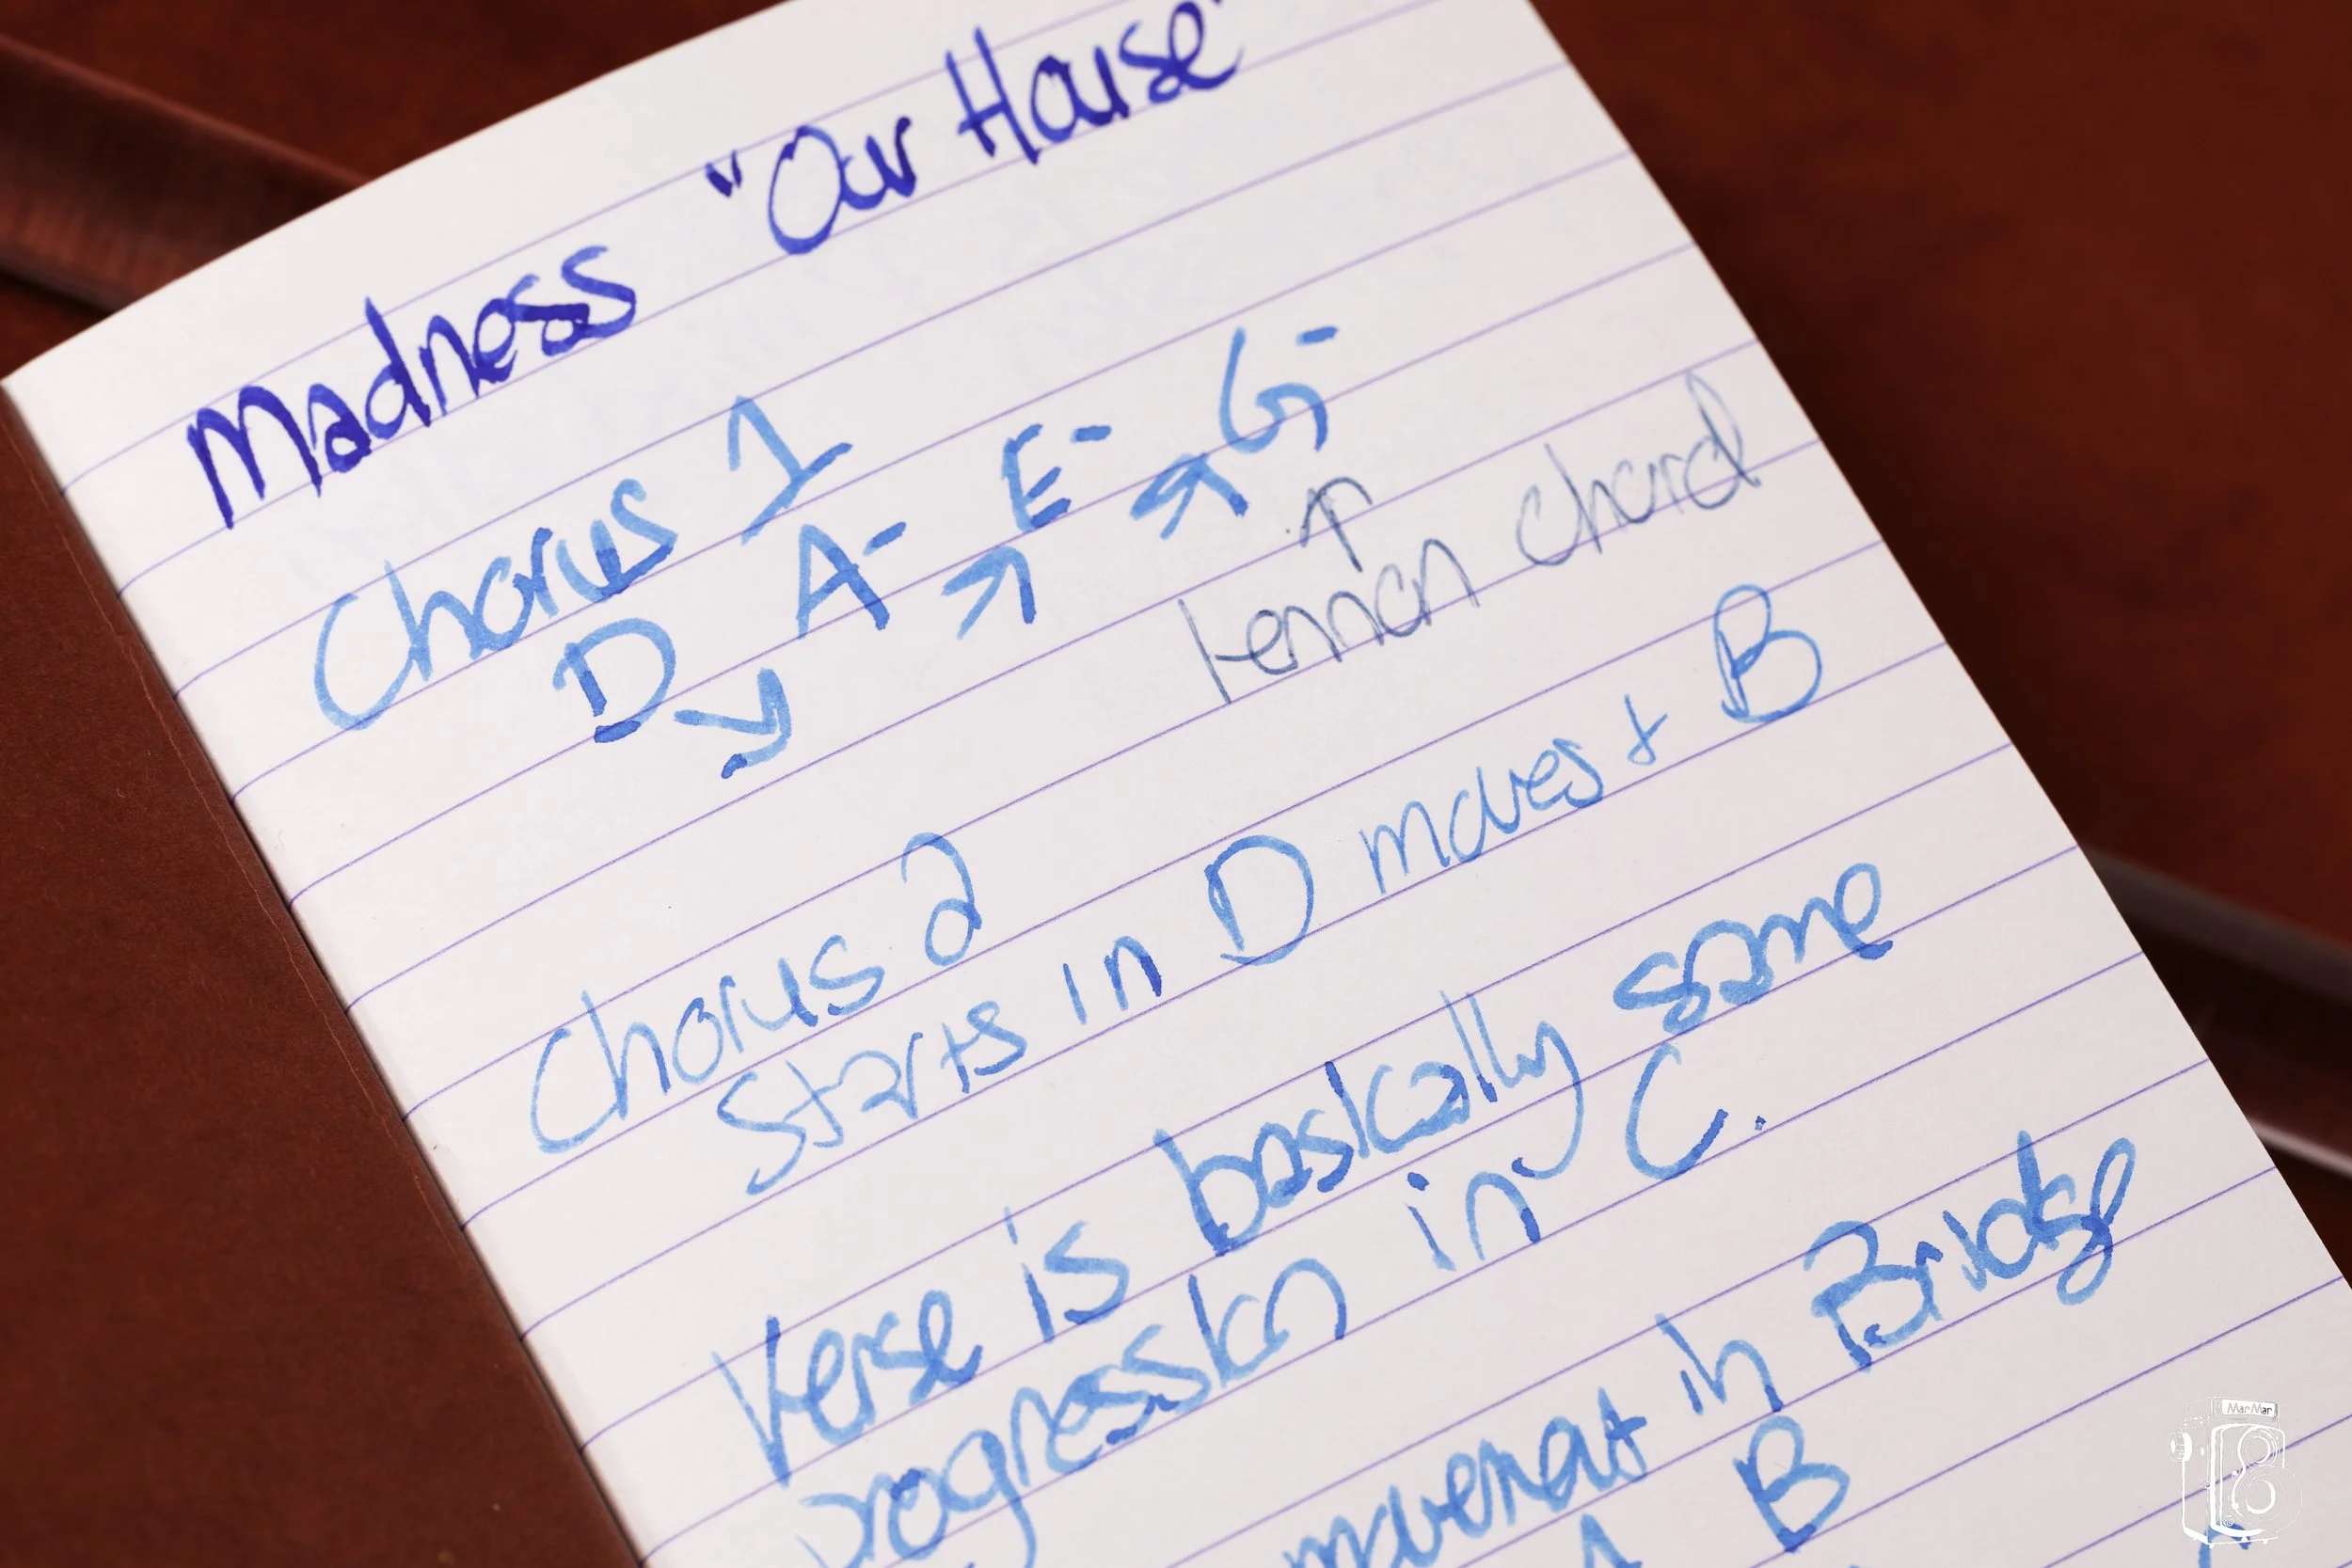 Madness "Our House"
Chorus 1
D ↘ A- ↗ E- ↗ G-
↑
Lennon chord
Chorus 2
Starts in D moves + B
Verse is basically same
progression in C.
movement in Bridge
A B
MarMar